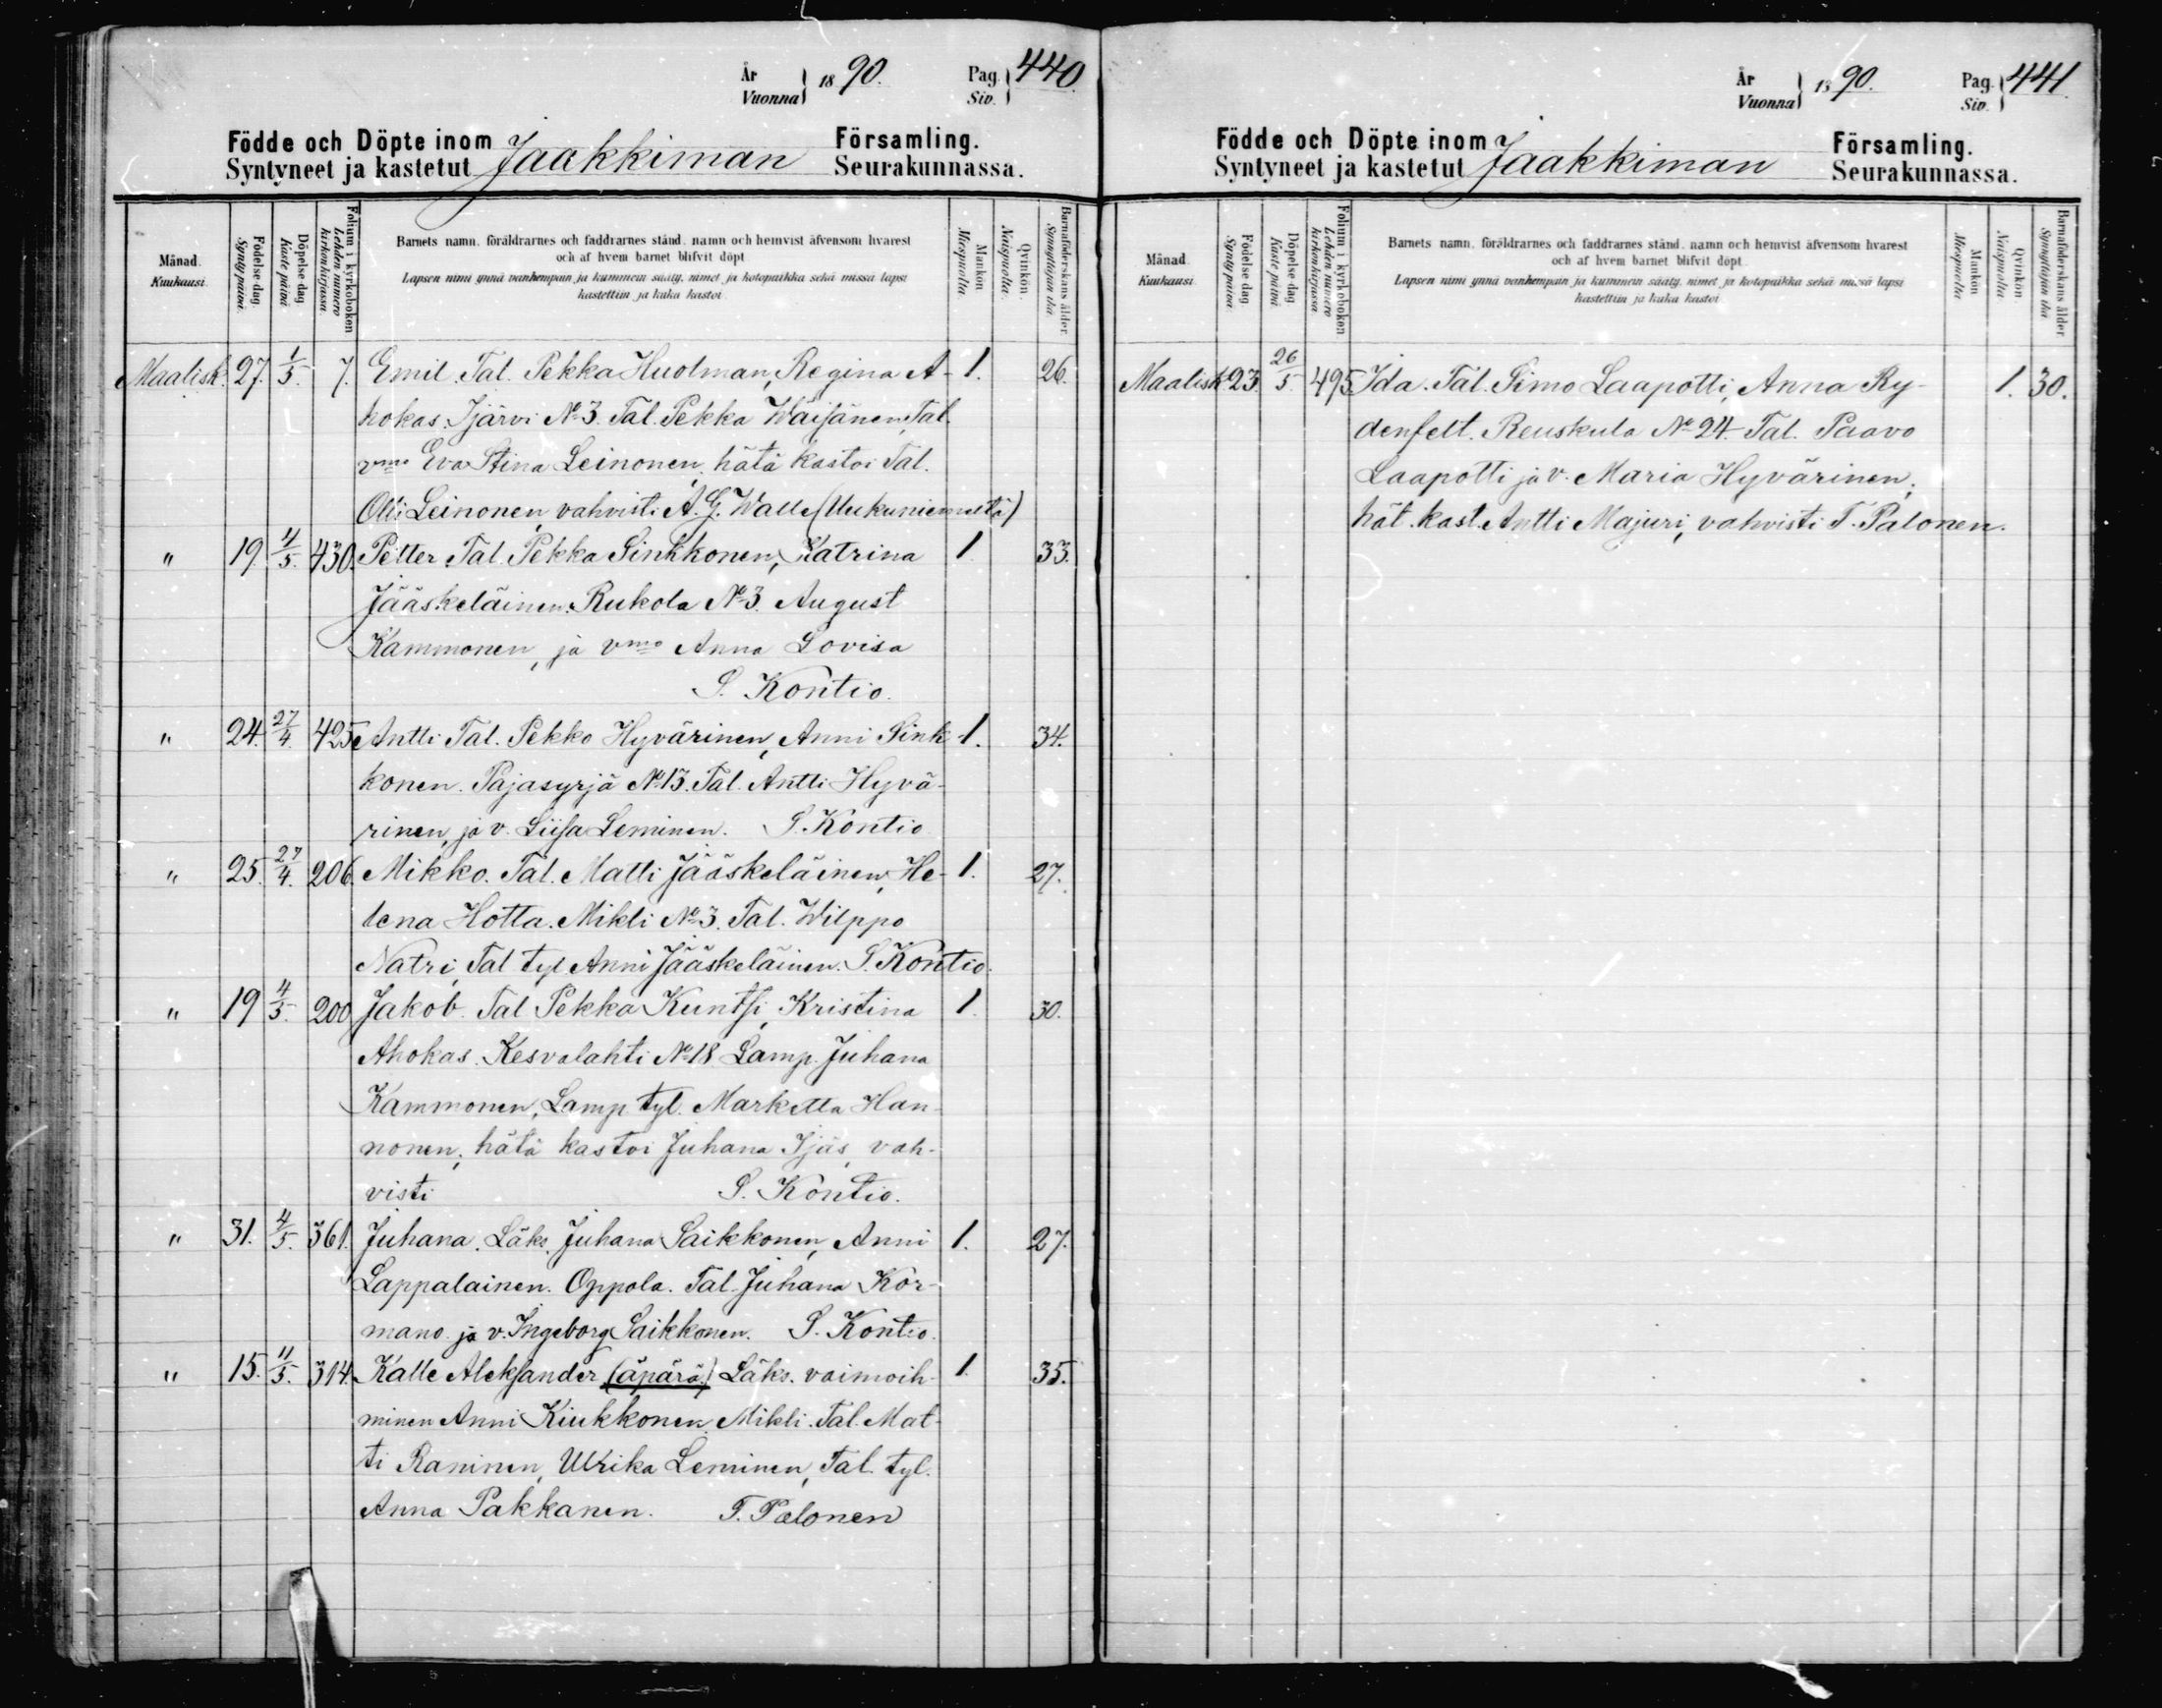 År Vuonna } 1890. Pag. Siv. } 440.
Födde och Döpte inom Jaakkiman Församling.
Syntyneet ja kastetut Seurakunnassa.
Månad. Kuukausi.
Födelse dag. Synty päivä.
Döpelse dag. Kaste päivä.
Folium i kyrkoboken Lehden numero kirkonkirjassa.
Barnets namn, föräldrarnes och faddrarnes stånd, namn och hemvist äfvensom hvarest
och af hvem barnet blifvit döpt.
Lapsen nimi ynnä vanhempain ja kummein sääty, nimet ja kotopaikka sekä missä lapsi
kastettiin ja kuka kastoi.
Mankön. Miespuolta.
Qvinkön. Naispuolta.
Barnaföderskans ålder. Synnyttäjän ikä.
Maalisk. 27. 1/5. 7. Emil. Tal. Pekka Huolman, Regina A- 1. 26.
hokas. Ijärvi No 3. Tal. Pekka Wäisänen, Tal.
vmo Eva Stina Leinonen, hätä kastoi Tal.
Olli Leinonen, vahvisti A. G. Walle (Uukuniemeltä)
" 19. 4/5. 430. Petter. Tal. Pekka Sinkkonen, Katrina 1. 33.
Jääskeläinen. Rukola No 3. August
Kammonen, ja vmo Anna Lovisa
S. Kontio.
" 24. 27/4. 425 Antti. Tal. Pekko Hyvärinen, Anni Sink- 1. 34.
konen. Pajasyrjä No 13. Tal. Antti Hyvä-
rinen, ja v. Liisa Leminen. S. Kontio
" 25. 27/4. 206. Mikko. Tal. Matti Jääskeläinen, He- 1. 27.
lena Hotta. Mikli No 3. Tal. Wilppo
Natri, Tal tyt Anni Jääskeläinen. S. Kontio.
" 19 4/5. 200 Jakob. Tal Pekka Kuntsi, Kristina 1. 30.
Ahokas. Kesvalahti No 18 Lamp. Juhana
Kammonen, Lamp tyt. Marketta Han-
nonen, hätä kastoi Juhana Ijäs, vah-
visti S. Kontio.
" 31. 4/5. 361. Juhana. Läks. Juhana Saikkonen, Anni 1. 27.
Lappalainen. Oppola. Tal. Juhana Kor-
mano ja v. Ingeborg Saikkonen. S. Kontio.
" 15. 11/5. 314. Kalle Aleksander (äpärä.) Läks. vaimoih- 1. 35.
minen Anni Kiukkonen. Mikli. Tal. Mat-
ti Raninen, Ulrika Leminen, Tal. tyt.
Anna Pakkanen. T. Palonen
År Vuonna } 1890. Pag. Siv. } 441.
Födde och Döpte inom Jaakkiman Församling.
Syntyneet ja kastetut Seurakunnassa.
Månad. Kuukausi.
Födelse dag. Synty päivä.
Döpelse dag. Kaste päivä.
Folium i kyrkoboken Lehden numero kirkonkirjassa.
Barnets namn, föräldrarnes och faddrarnes stånd, namn och hemvist äfvensom hvarest
och af hvem barnet blifvit döpt.
Lapsen nimi ynnä vanhempain ja kummein sääty, nimet ja kotopaikka sekä missä lapsi
kastettiin ja kuka kastoi.
Mankön. Miespuolta.
Qvinkön. Naispuolta.
Barnaföderskans ålder. Synnyttäjän ikä.
Maalisk. 23. 26/5. 495. Ida. Tal. Simo Laapotti, Anna Ry- 1. 30.
denfelt. Reuskula No 24. Tal. Paavo
Laapotti ja v. Maria Hyvärinen,
hät. kast. Antti Majuri, vahvisti T. Palonen.